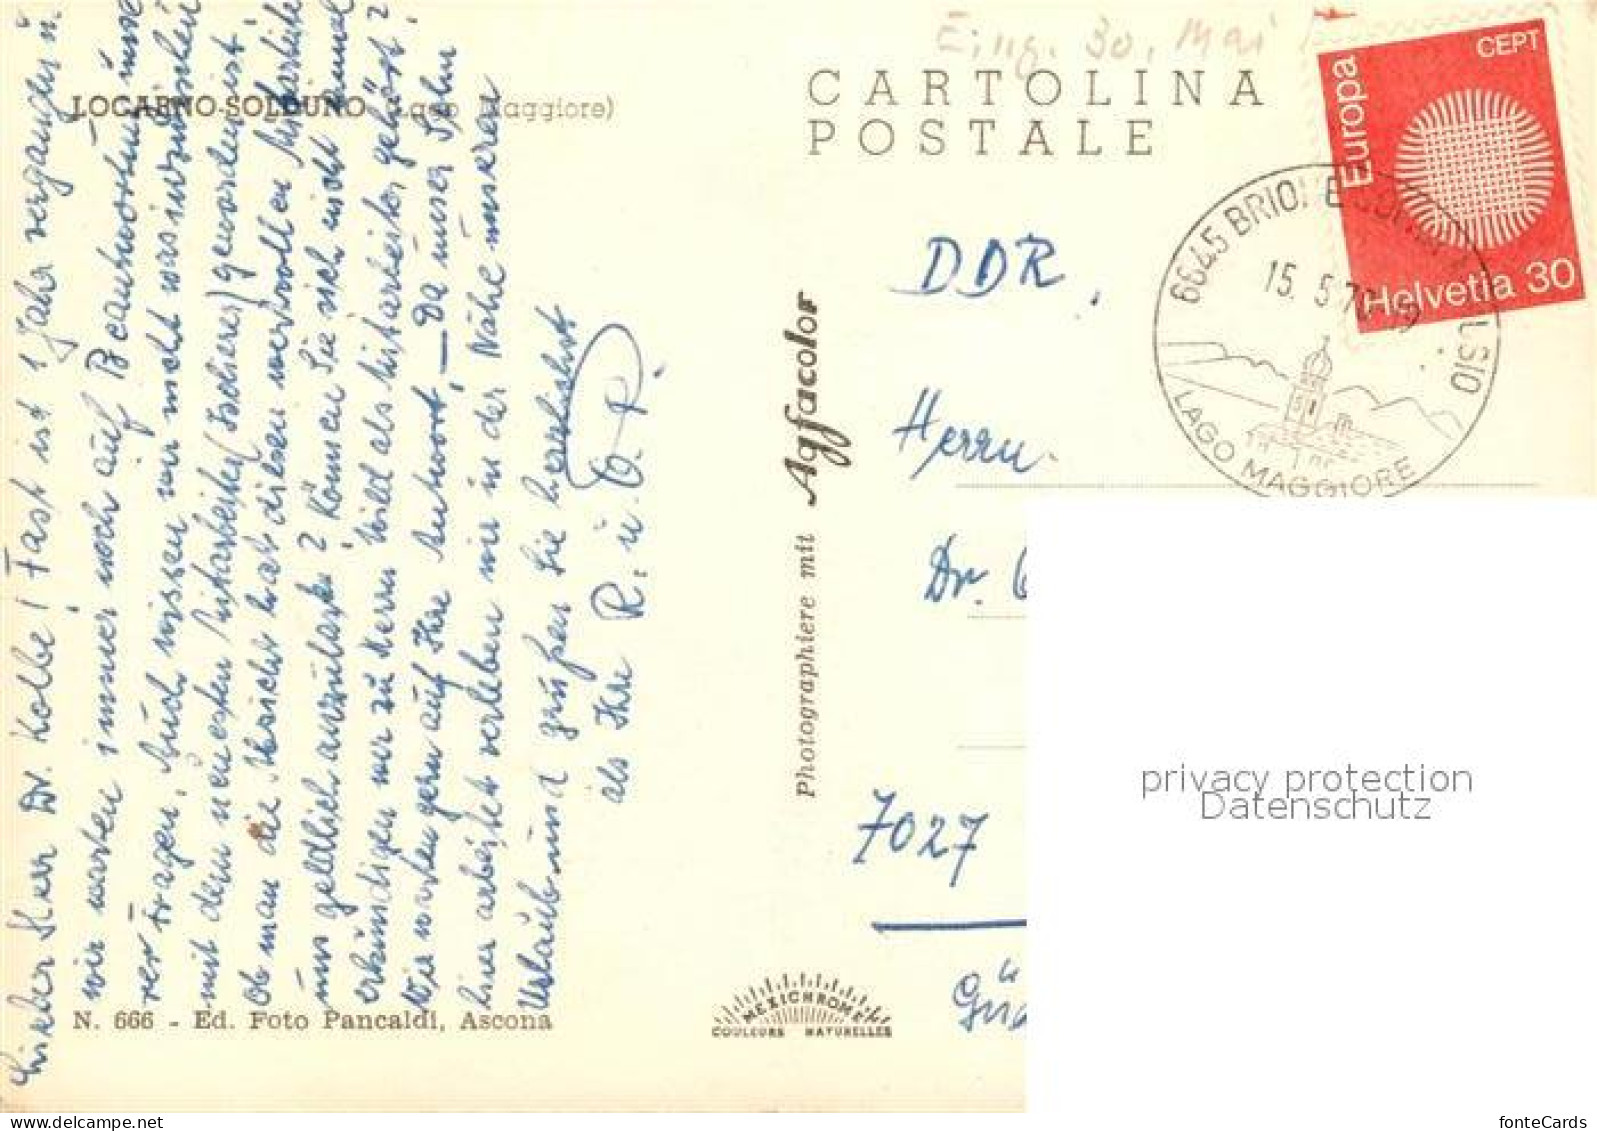 Eing. 30. Mai
CARTOLINA
POSTALE
LOCARNO-SOLDUNO (Lago Maggiore)
Europa
CEPT
Helvetia 30
6645 BRIONE
15. 5 70
LAGO MAGGIORE
DDR
Herrn
Dr.
7027
Photographiere mit Agfacolor
MEXICHROME
COULEURS NATURELLES
N. 666 - Ed. Foto Pancaldi, Ascona
Lieber Herr Dr. Kolbe! Fast ist 1 Jahr vergangen u.
wir warten immer noch auf Beantwortung uns.
Fragen. Auch wissen wir nicht was inzwischen
mit dem neuesten Mitarbeiter (Isolierer) geworden ist.
Ob man die Absicht hat diesen wertvollen Mitarbeiter
uns geldlich ? Können Sie sich nicht einmal
erkundigen wer zu Herrn Wild als Mitarbeiter gehört?
Wir warten gern auf Ihre Antwort. — Da unser Sohn
hier arbeitet verleben wir in der Nähe unseren
Urlaub und grüßen Sie herzlichst
als Ihre R. u.
privacy protection
Datenschutz
fonteCards